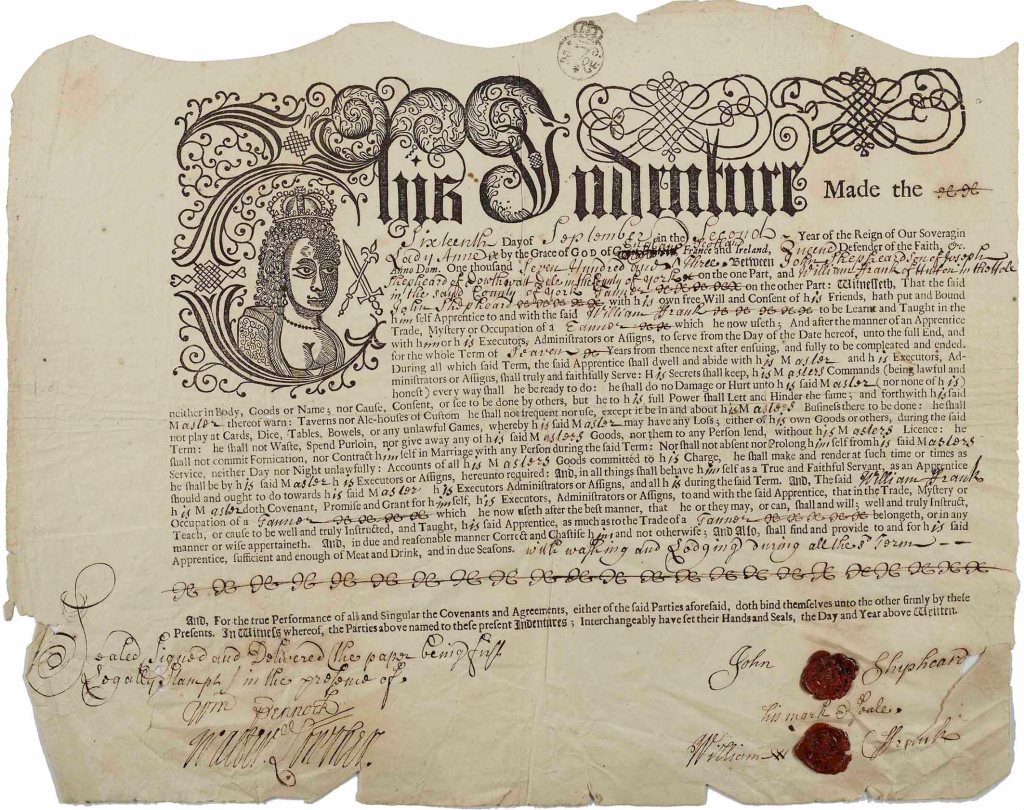 This Indenture Made the
Sixteenth Day of September in the Second Year of the Reign of Our Soveragin
Lady Anne by the Grace of GOD of England Scotland France and Ireland, Queene Defender of the Faith, &c.
Anno Dom. One thousand Seven Hundred and Three. Between John Shepheard Son of Joseph
Shepheard of in the County of York on the one Part, and William Frank of Hutton in the Hole
in the said County of York Tanner on the other Part: Witnesseth, That the said
John Shepheard with his own free Will and Consent of his Friends, hath put and Bound
himself Apprentice to and with the said William Frank to be Learnt and Taught in the
Trade, Mystery or Occupation of a Tanner which he now useth; And after the manner of an Apprentice
with him or his Executors, Administrators or Assigns, to serve from the Day of the Date hereof, unto the full End, and
for the whole Term of Seaven Years from thence next after ensuing, and fully to be compleated and ended.
During all which said Term, the said Apprentice shall dwell and abide with his Master and his Executors, Ad-
ministrators or Assigns, shall truly and faithfully Serve: His Secrets shall keep, his Masters Commands (being lawful and
honest) every way shall he be ready to do: he shall do no Damage or Hurt unto his said Master (nor none of his)
neither in Body, Goods or Name; nor Cause, Consent, or see to be done by others, but he to his full Power shall Lett and Hinder the same; and forthwith his said
Master thereof warn: Taverns nor Ale-houses of Custom he shall not frequent nor use, except it be in and about his Masters Business there to be done: he shall
not play at Cards, Dice, Tables, Bowels, or any unlawful Games, whereby his said Master may have any Loss; either of his own Goods or others, during the said
Term: he shall not Waste, Spend Purloin, nor give away any of his said Masters Goods, nor them to any Person lend, without his Masters Licence: he
shall not commit Fornication, nor Contract himself in Marriage with any Person during the said Term: Nor shall not absent nor Prolong himself from his said Masters
Service, neither Day nor Night unlawfully: Accounts of all his Masters Goods committed to his Charge, he shall make and render at such time or times as
he shall be by his said Master his Executors or Assigns, hereunto required: And, in all things shall behave himself as a True and Faithful Servant, as an Apprentice
should and ought to do towards his said Master his Executors Administrators or Assigns, and all his during the said Term. And, The said William Frank
his Master doth Covenant, Promise and Grant for himself, his Executors, Administrators or Assigns, to and with the said Apprentice, that in the Trade, Mystery or
Occupation of a Tanner which he now useth after the best manner, that he or they may, or can, shall and will; well and truly Instruct,
Teach, or cause to be well and truly Instructed, and Taught, his said Apprentice, as much as to the Trade of a Tanner belongeth, or in any
manner or wise appertaineth. And, in due and reasonable manner Correct and Chastise him and not otherwise; And Also, shall find and provide to and for his said
Apprentice, sufficient and enough of Meat and Drink, and in due Seasons. with washing and Lodging during all the sd Term
And, For the true Performance of all and Singular the Covenants and Agreements, either of the said Parties aforesaid, doth bind themselves unto the other firmly by these
Presents. In Witness whereof, the Parties above named to these present Indentures; Interchangeably have set their Hands and Seals, the Day and Year above Written.
Sealed Signed and Delivered (the paper being first
Legally Stampt) in the presence of.
Wm Pennock
John Shepheard
his mark & Seale.
William Frank